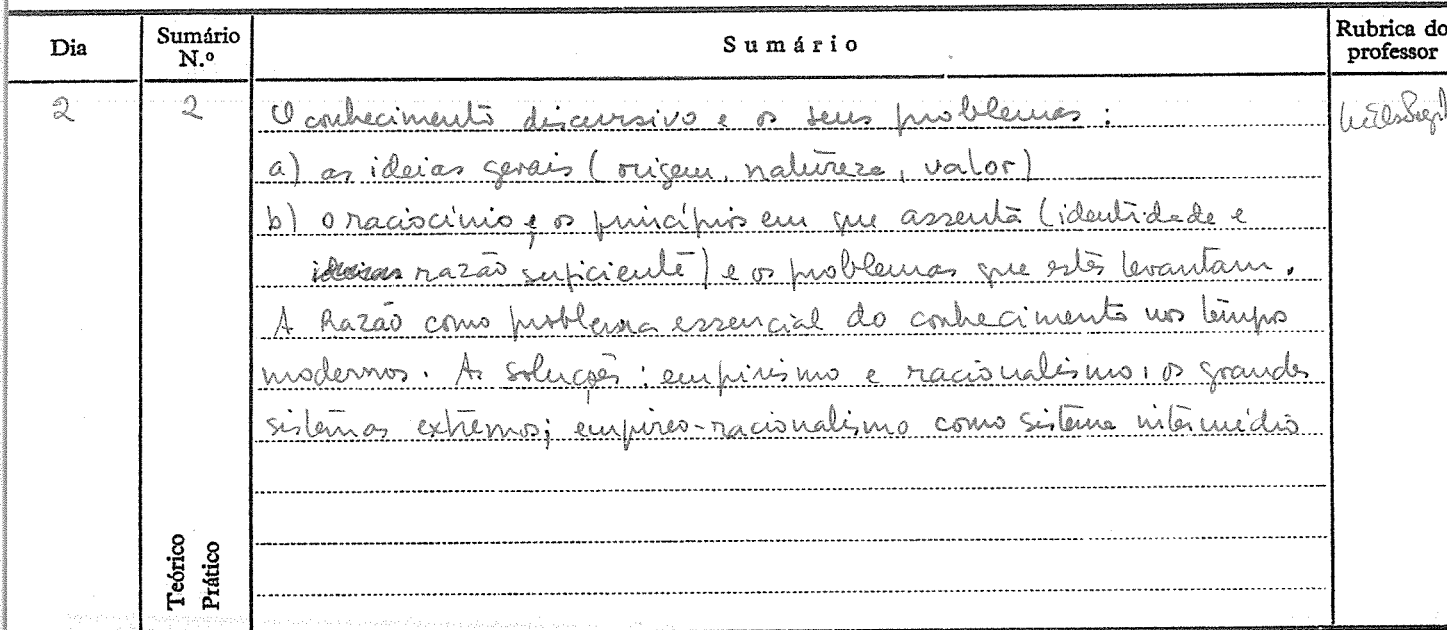 Dia
Sumário N.º
Sumário
Rubrica do professor
2
2
O conhecimento discursivo e os seus problemas:
a) as ideias gerais (origem, natureza, valor)
b) o raciocínio e os princípios em que assenta (identidade e
razão suficiente) e os problemas que estes levantam.
A Razão como problema essencial do conhecimento nos tempos
modernos. As soluções: empirismo e racionalismo, os grandes
sistemas extremos; empireo-racionalismo como sistema intermédio
Teórico
Prático